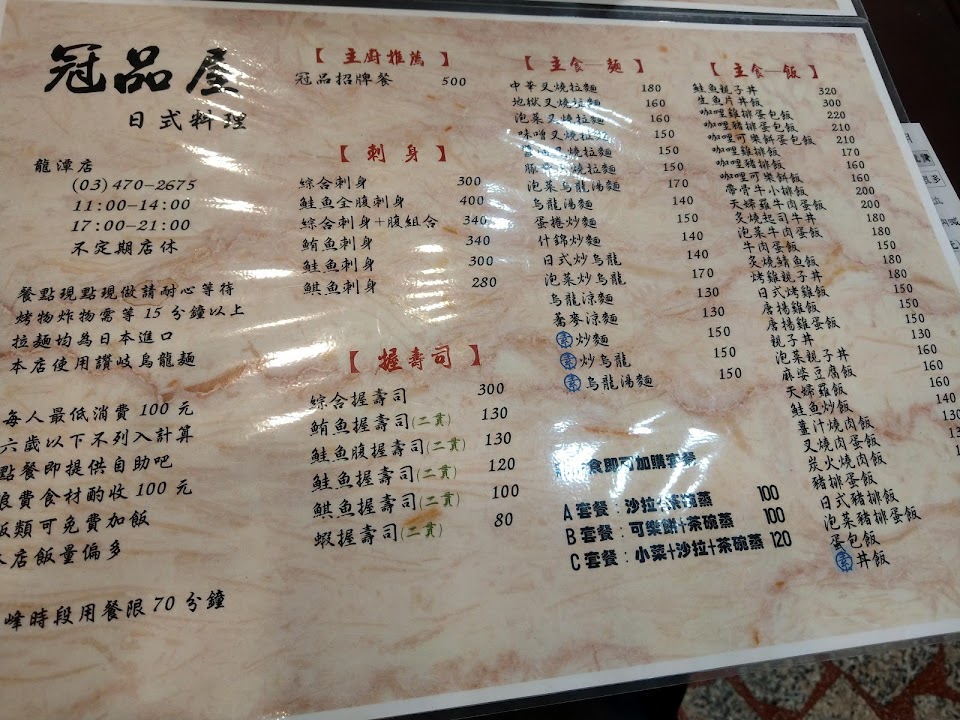 冠品屋
日式料理
龍潭店
(03)470-2675
11:00-14:00
17:00-21:00
不定期店休
餐點現點現做請耐心等待
烤物炸物需等 15 分鐘以上
拉麵均為日本進口
本店使用讚岐烏龍麵
每人最低消費 100 元
六歲以下不列入計算
點餐即提供自助吧
浪費食材酌收 100 元
飯類可免費加飯
本店飯量偏多
峰時段用餐限 70 分鐘
【 主廚推薦 】
冠品招牌餐 500
【 刺 身 】
綜合刺身 300
鮭魚全腹刺身 400
綜合刺身+腹組合 340
鮪魚刺身 340
鮭魚刺身 300
鯕魚刺身 280
【 握壽司 】
綜合握壽司 300
鮪魚握壽司(二貫) 130
鮭魚腹握壽司(二貫) 130
鮭魚握壽司(二貫) 120
鯕魚握壽司(二貫) 100
蝦握壽司(二貫) 80
【 主食─麵 】
中華叉燒拉麵 180
地獄叉燒拉麵 160
泡菜叉燒拉麵 160
味噌叉燒拉麵 150
叉燒拉麵 150
叉燒拉麵 150
泡菜烏龍湯麵 170
烏龍湯麵 140
蛋捲炒麵 150
什錦炒麵 140
日式炒烏龍 140
泡菜炒烏龍 170
烏龍涼麵 130
蕎麥涼麵 130
素 炒麵 150
素 炒烏龍 150
素 烏龍湯麵 150
食即可加購套餐
A 套餐：沙拉+茶碗蒸 100
B 套餐：可樂餅+茶碗蒸 100
C 套餐：小菜+沙拉+茶碗蒸 120
【 主食─飯 】
鮭魚親子丼 320
生魚片丼飯 300
咖哩雞排蛋包飯 220
咖哩豬排蛋包飯 210
咖哩可樂餅蛋包飯 210
咖哩雞排飯 170
咖哩豬排飯 160
咖哩可樂餅飯 160
帶骨牛小排飯 200
天婦羅牛肉蛋飯 200
炙燒起司牛丼 180
泡菜牛肉蛋飯 180
牛肉蛋飯 150
炙燒鯖魚飯 180
烤雞親子丼 180
日式烤雞飯 150
唐揚雞飯 150
唐揚雞蛋飯 150
親子丼 130
泡菜親子丼 160
麻婆豆腐飯 160
天婦羅飯 160
鮭魚炒飯 140
薑汁燒肉飯
叉燒肉蛋飯
炭火燒肉飯
豬排蛋飯
日式豬排飯
泡菜豬排蛋飯
蛋包飯
素 丼飯